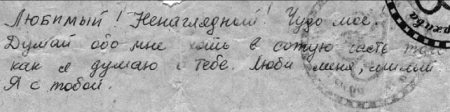 Любимый! Ненаглядный! Чудо моё.
Думай обо мне хоть в сотую часть
как я думаю о тебе. Люби меня, милый
Я с тобой.